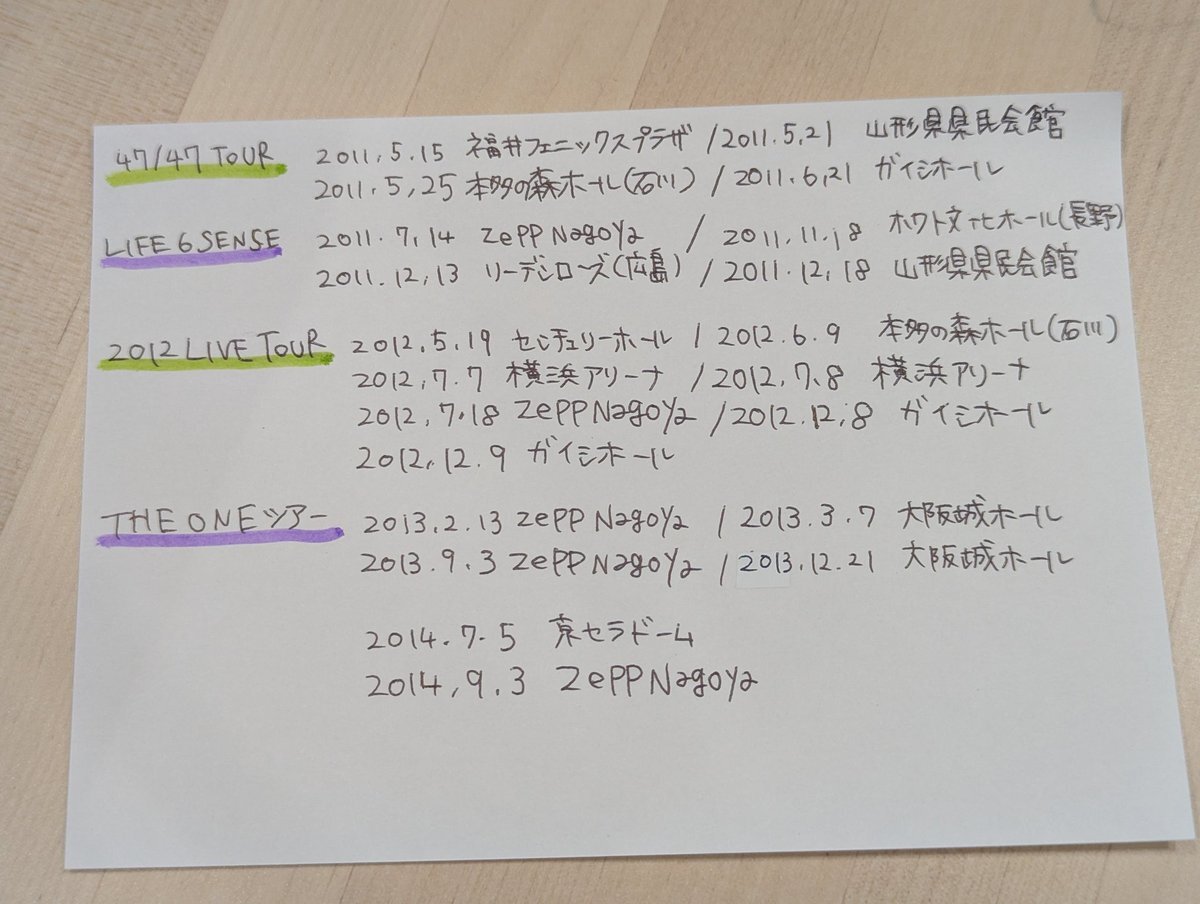 47/47 TOUR 2011.5.15 福井フェニックスプラザ / 2011.5.21 山形県県民会館
2011.5.25 本多の森ホール(石川) / 2011.6.21 ガイシホール
LIFE 6 SENSE 2011.7.14 Zepp Nagoya / 2011.11.18 ホワト文化ホール(長野)
2011.12.13 リーデンローズ(広島) / 2011.12.18 山形県県民会館
2012 LIVE TOUR 2012.5.19 センチュリーホール / 2012.6.9 本多の森ホール(石川)
2012.7.7 横浜アリーナ / 2012.7.8 横浜アリーナ
2012.7.18 Zepp Nagoya / 2012.12.8 ガイシホール
2012.12.9 ガイシホール
THE ONEツアー 2013.2.13 Zepp Nagoya / 2013.3.7 大阪城ホール
2013.9.3 Zepp Nagoya / 2013.12.21 大阪城ホール
2014.7.5 京セラドーム
2014.9.3 Zepp Nagoya